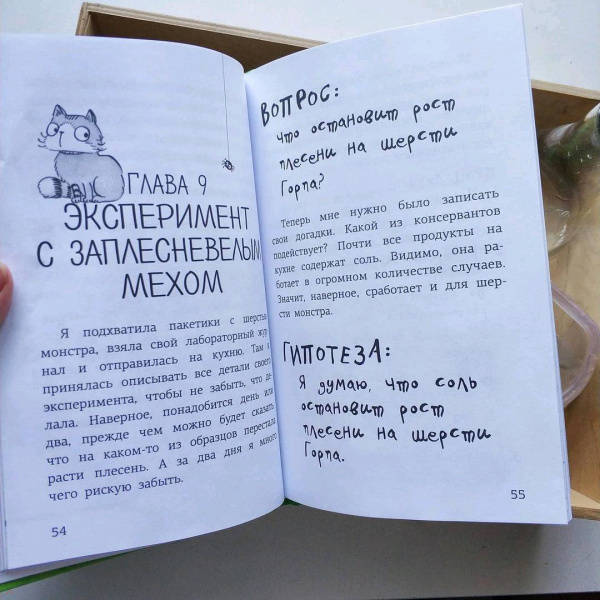 ГЛАВА 9
ЭКСПЕРИМЕНТ
С ЗАПЛЕСНЕВЕЛЫМ
МЕХОМ
Я подхватила пакетики с шерстью
монстра, взяла свой лабораторный жур-
нал и отправилась на кухню. Там я
принялась описывать все детали своего
эксперимента, чтобы не забыть, что де-
лала. Наверное, понадобится день или
два, прежде чем можно будет сказать,
что на каком-то из образцов перестала
расти плесень. А за два дня я много
чего рискую забыть.
54
ВОПРОС:
что остановит рост
плесени на шерсти
Горпа?
Теперь мне нужно было записать
свои догадки. Какой из консервантов
подействует? Почти все продукты на
кухне содержат соль. Видимо, она ра-
ботает в огромном количестве случаев.
Значит, наверное, сработает и для шер-
сти монстра.
ГИПОТЕЗА:
Я думаю, что соль
остановит рост
плесени на шерсти
Горпа.
55